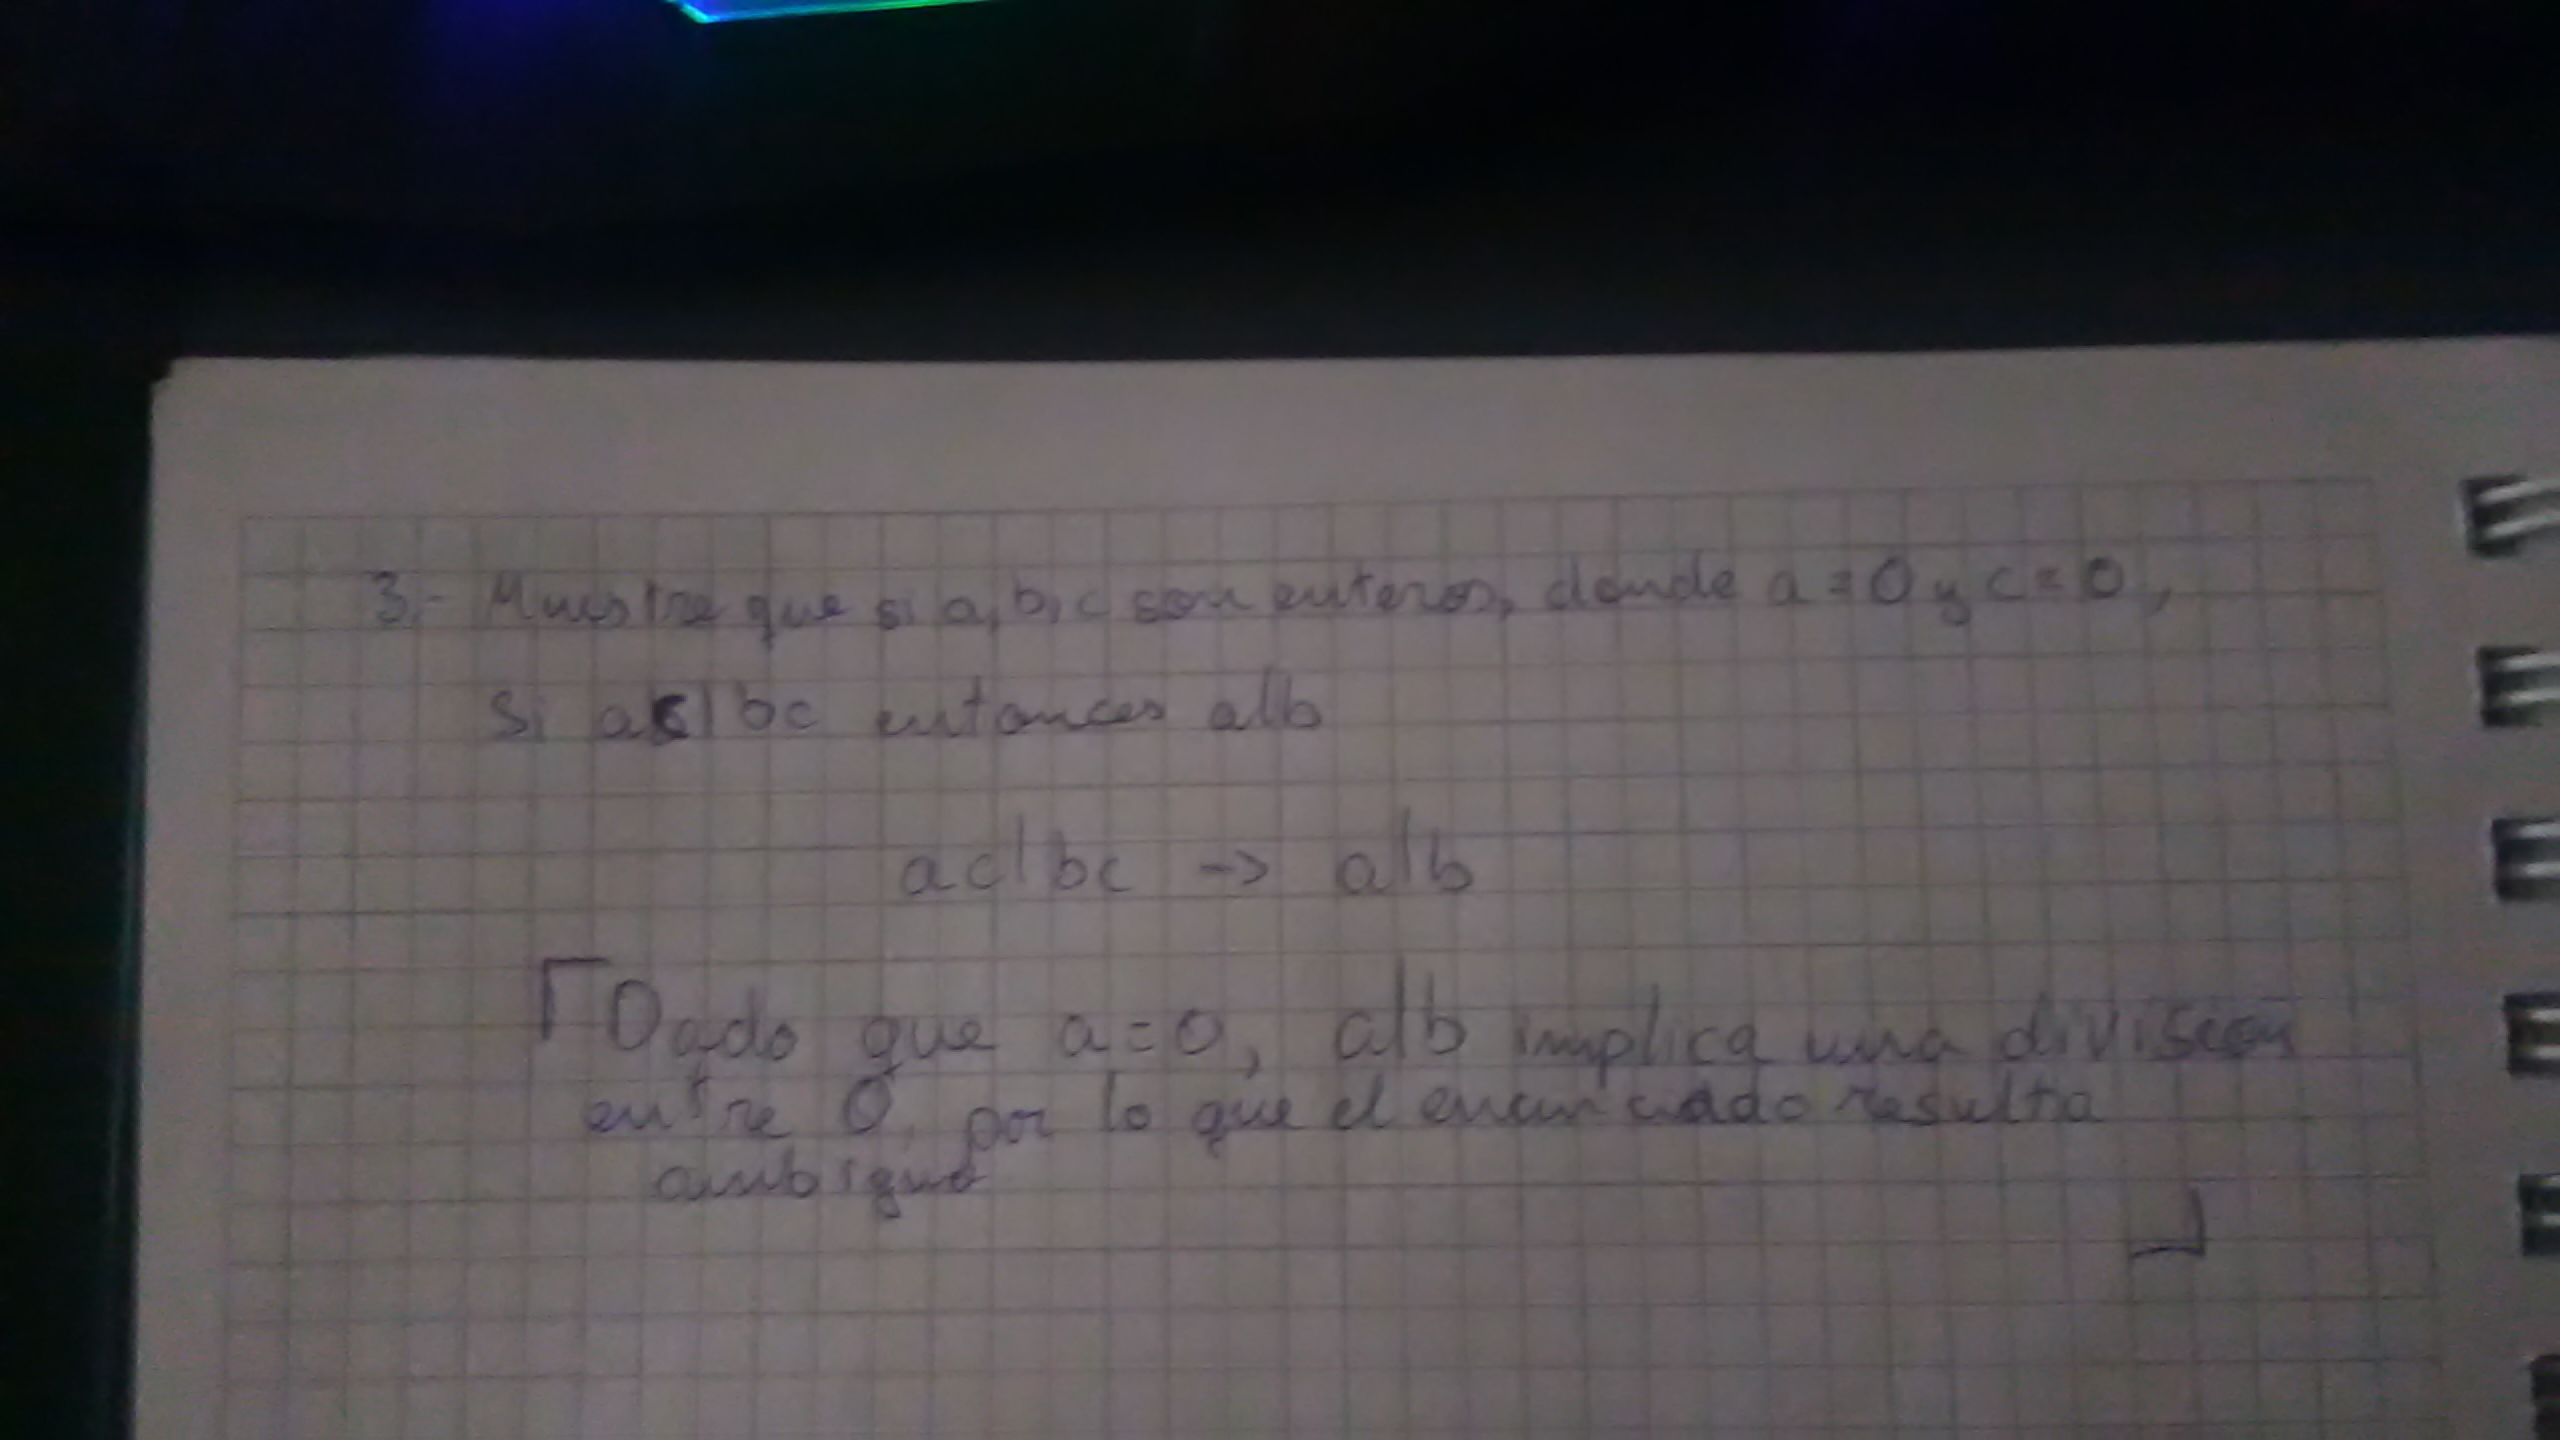 3.- Muestre que si a, b, c son enteros, donde a = 0 y c = 0,
si ac|bc entonces a|b
ac|bc -> a|b
Dado que a=0, a|b implica una division
entre 0, por lo que el enunciado resulta
ambiguo